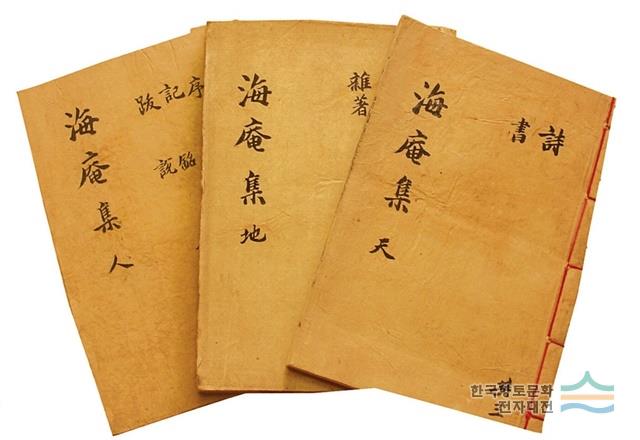 詩
書
海庵集 天
共三
雜著
海庵集 地
序
記
跋
銘
說
海庵集 人
한국향토문화
전자대전